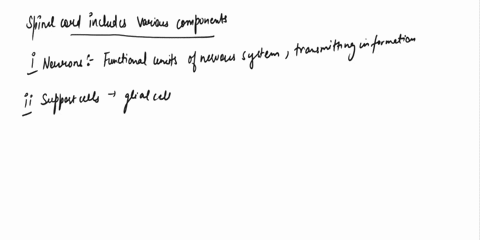 Spinal cord includes various components
i Neurons:- Functional units of nervous system, transmitting information
ii Support cells → glial cell